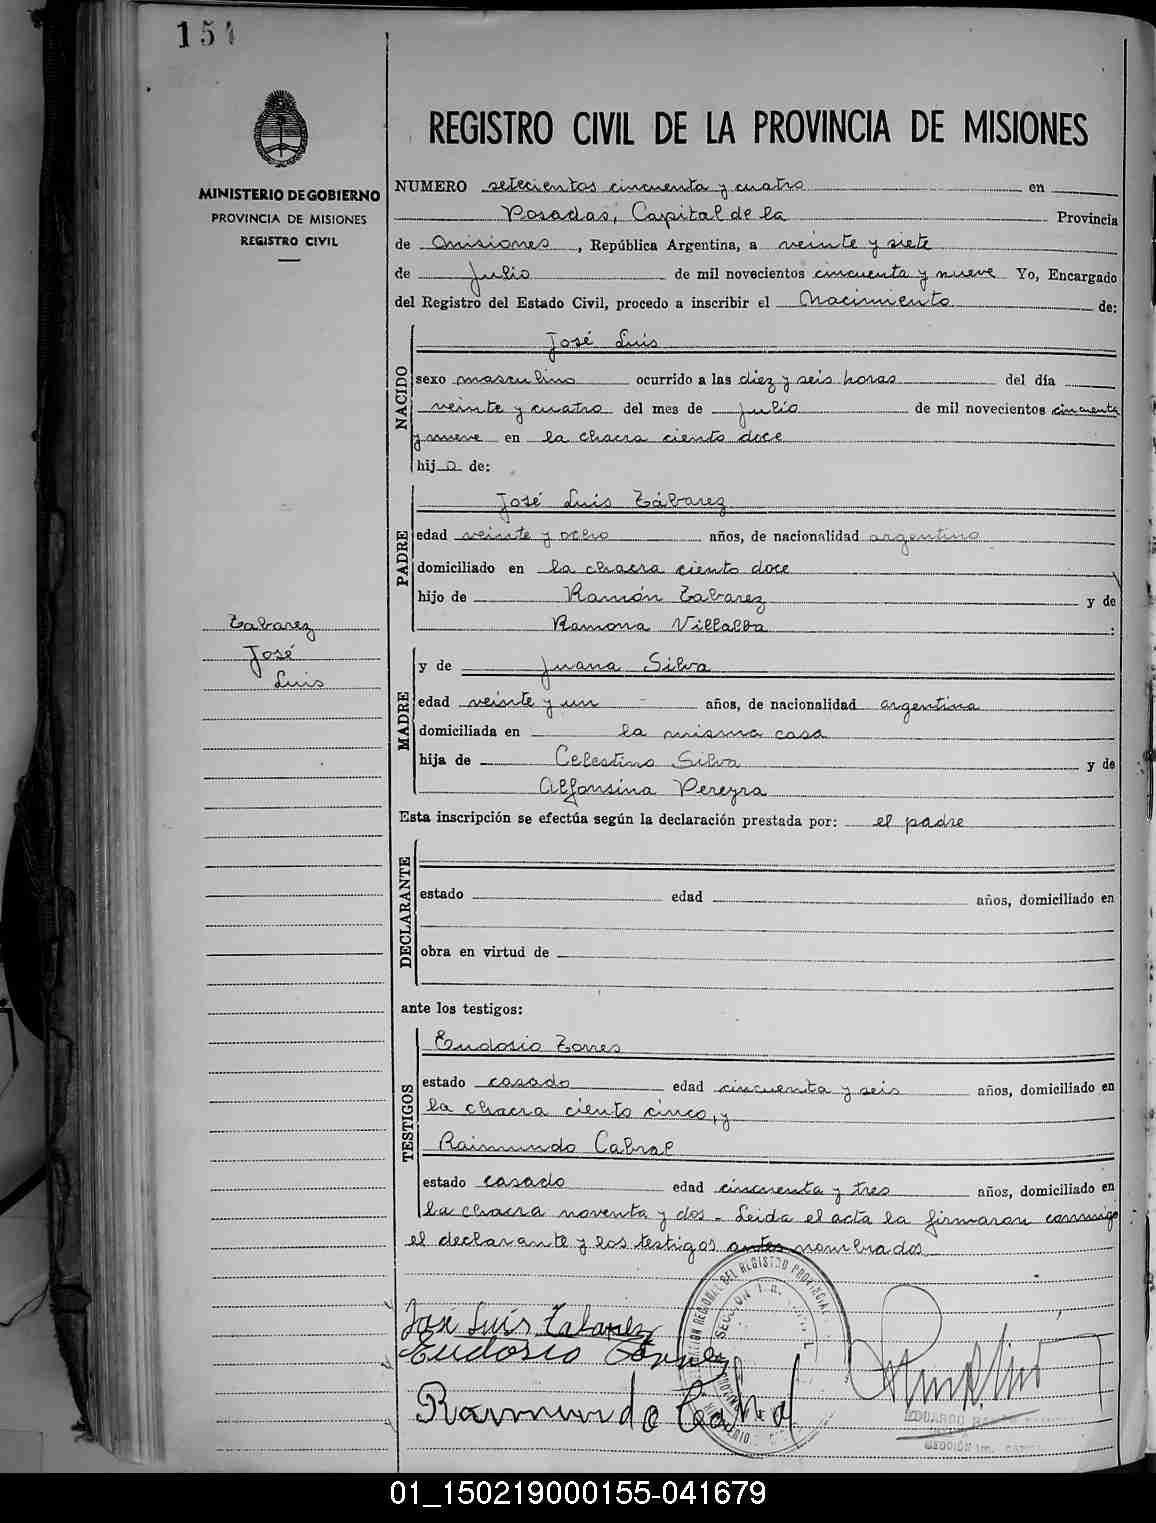 154
MINISTERIO DE GOBIERNO
PROVINCIA DE MISIONES
REGISTRO CIVIL
REGISTRO CIVIL DE LA PROVINCIA DE MISIONES
NUMERO setecientos cincuenta y cuatro en
Posadas, Capital de la Provincia
de Misiones, República Argentina, a veinte y siete
de Julio de mil novecientos cincuenta y nueve Yo, Encargado
del Registro del Estado Civil, procedo a inscribir el Nacimiento de:
NACIDO
José Luis
sexo masculino ocurrido a las diez y seis horas del día
veinte y cuatro del mes de julio de mil novecientos cincuenta
y nueve en la chacra ciento doce
hijo de:
PADRE
José Luis Tábarez
edad veinte y ocho años, de nacionalidad argentino
domiciliado en la chacra ciento doce
hijo de Ramón Tabarez y de
Ramona Villalba :
Tabarez
José
Luis
MADRE
y de Juana Silva
edad veinte y un años, de nacionalidad argentina
domiciliada en la misma casa
hija de Celestino Silva y de
Alfonsina Pereyra
Esta inscripción se efectúa según la declaración prestada por: el padre
DECLARANTE
estado edad años, domiciliado en
obra en virtud de
ante los testigos:
TESTIGOS
Eudosio Torres
estado casado edad cincuenta y seis años, domiciliado en
la chacra ciento cinco, y
Raimundo Cabral
estado casado edad cincuenta y tres años, domiciliado en
la chacra noventa y dos - Leida el acta la firmaron conmigo
el declarante y los testigos antes nombrados
José Luis Tabarez
Eudosio Torres
Raimundo Cabral
DEL REGISTRO PROVINCIAL
SECCIÓN 1ra.
EDUARDO
SECCIÓN 1ra.
01_150219000155-041679